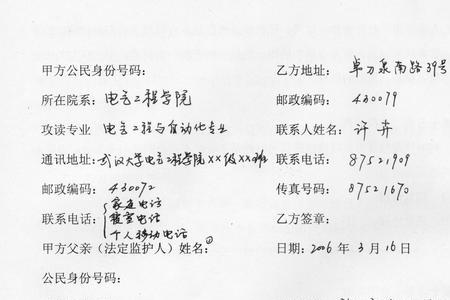 甲方公民身份号码: 乙方地址: 卓刀泉南路39号
所在院系: 电气工程学院 邮政编码: 430079
攻读专业 电气工程与自动化专业 联系人姓名: 许卉
通讯地址: 武汉大学电气工程学院XX级XX班 联系电话: 87521909
邮政编码: 430072 传真号码: 87521670
家庭电话
联系电话: 寝室电话 乙方签章:
个人移动电话
甲方父亲(法定监护人)姓名:① 日期: 2006 年 3 月 16 日
公民身份号码: